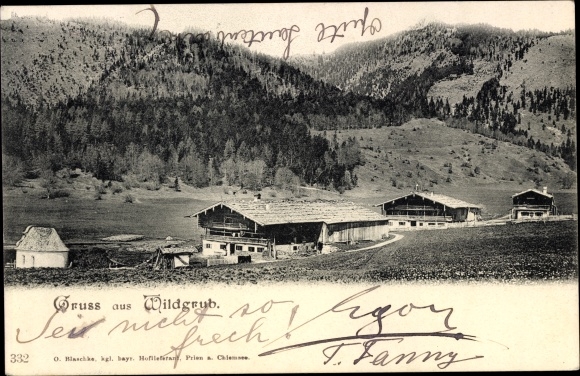 Gruss aus Wildgrub.
Sei nicht so
frech!
T. Fanny
332
O. Blaschke, kgl. bayr. Hoflieferant, Prien a. Chiemsee.